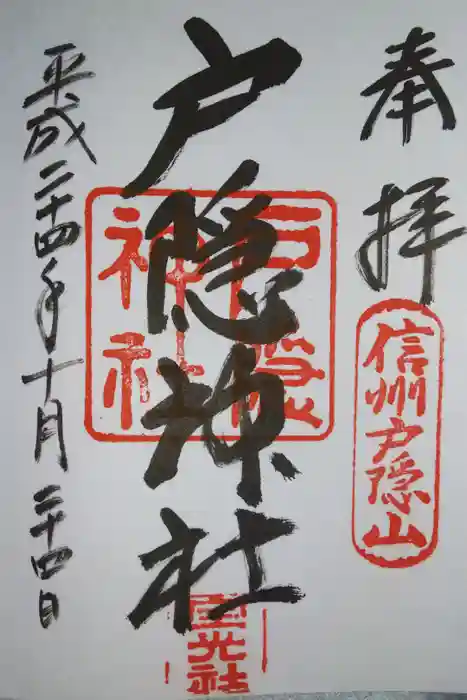 奉拝
信州戸隠山
戸隠神社
戸隠神社
宝光社
平成二十四年十月二十四日